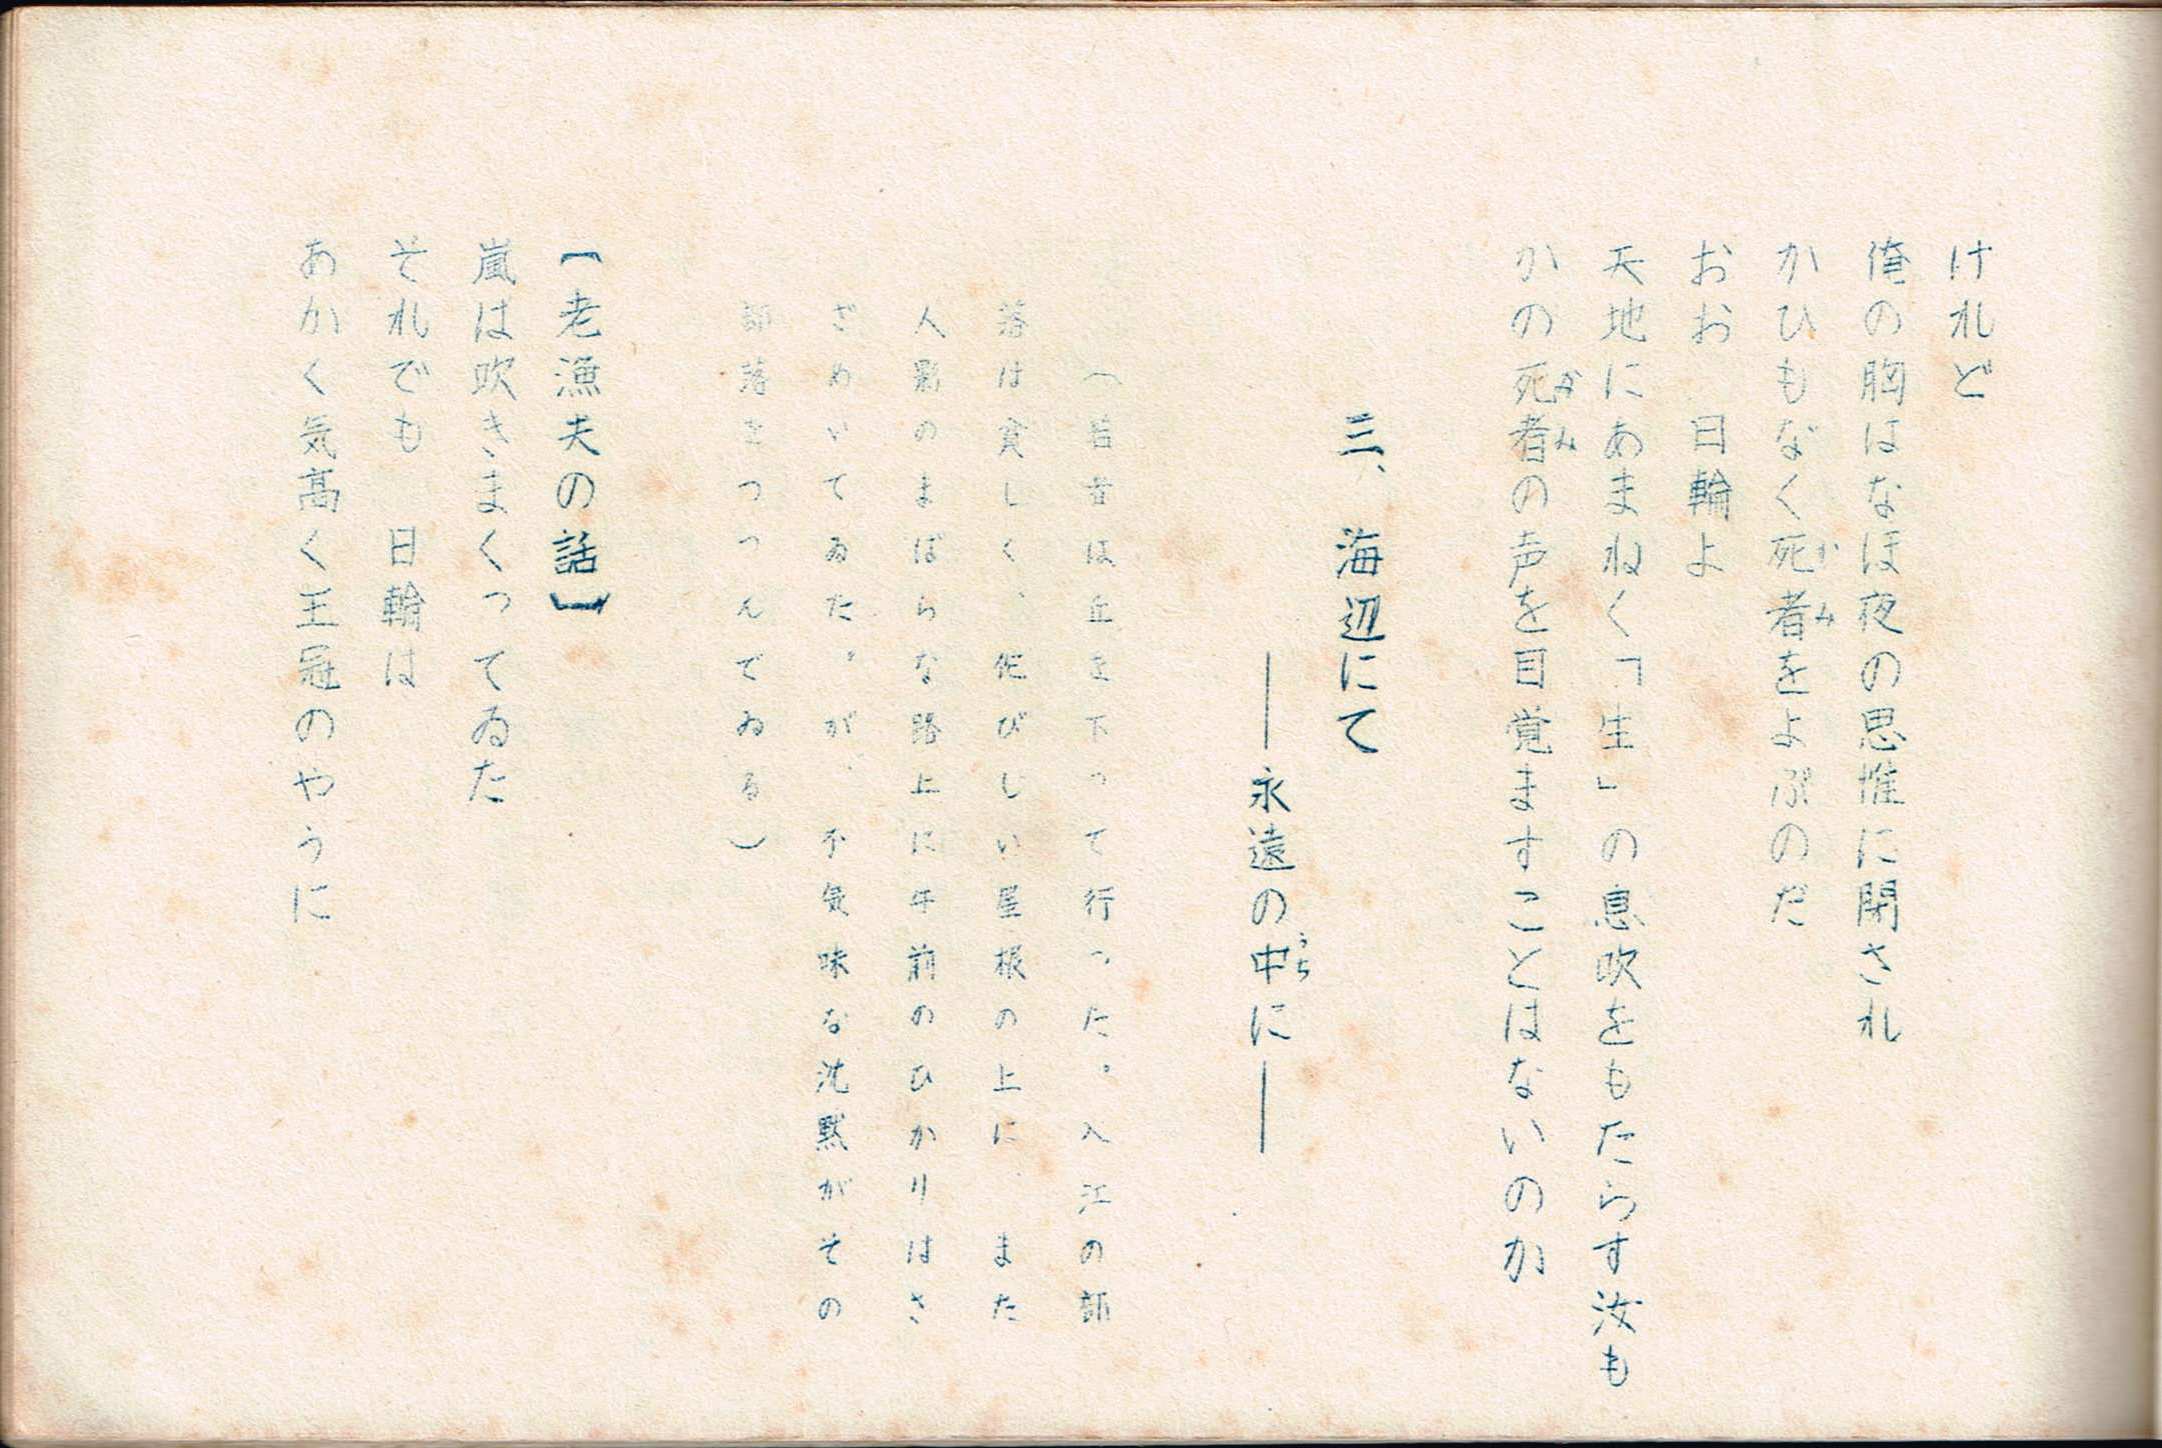 けれど
俺の胸はなほ夜の思惟に閉され
かひもなく死者(かみ)をよぶのだ
おお　日輪よ
天地にあまねく「生」の息吹をもたらす汝も
かの死者(かみ)の声を目覚ますことはないのか
三、海辺にて
――永遠の中(うち)に――
(若者は丘を下って行った。入江の部
落は貧しく、侘びしい屋根の上に、また
人影のまばらな路上に午前のひかりはさ
ざめいてゐた。が、不気味な沈黙がその
部落をつつんでゐる)
【老漁夫の話】
嵐は吹きまくってゐた
それでも　日輪は
あかく気高く王冠のやうに